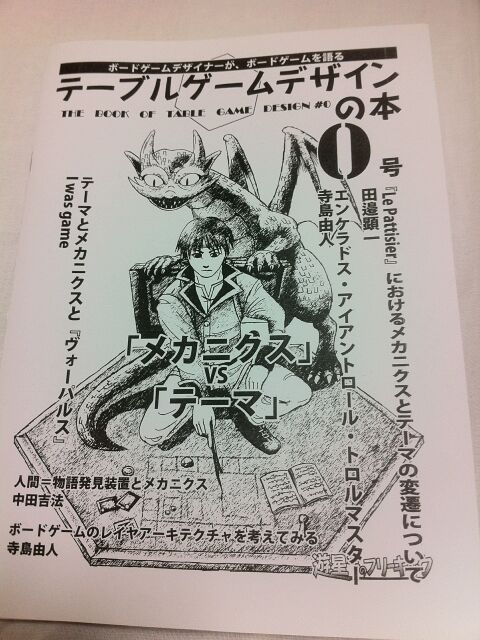 ボードゲームデザイナーが、ボードゲームを語る
テーブルゲームデザインの本
THE BOOK OF TABLE GAME DESIGN #0
0号
『Le Pattisier』におけるメカニクスとテーマの変遷について
田邉顕一
エンケラドス・アイアントロール・トロルマスター
寺島由人
テーマとメカニクスと『ヴォーパルス』
I was game
「メカニクス」
VS
「テーマ」
人間＝物語発見装置とメカニクス
中田吉法
ボードゲームのレイヤアーキテクチャを考えてみる
寺島由人
遊星からのフリーキック